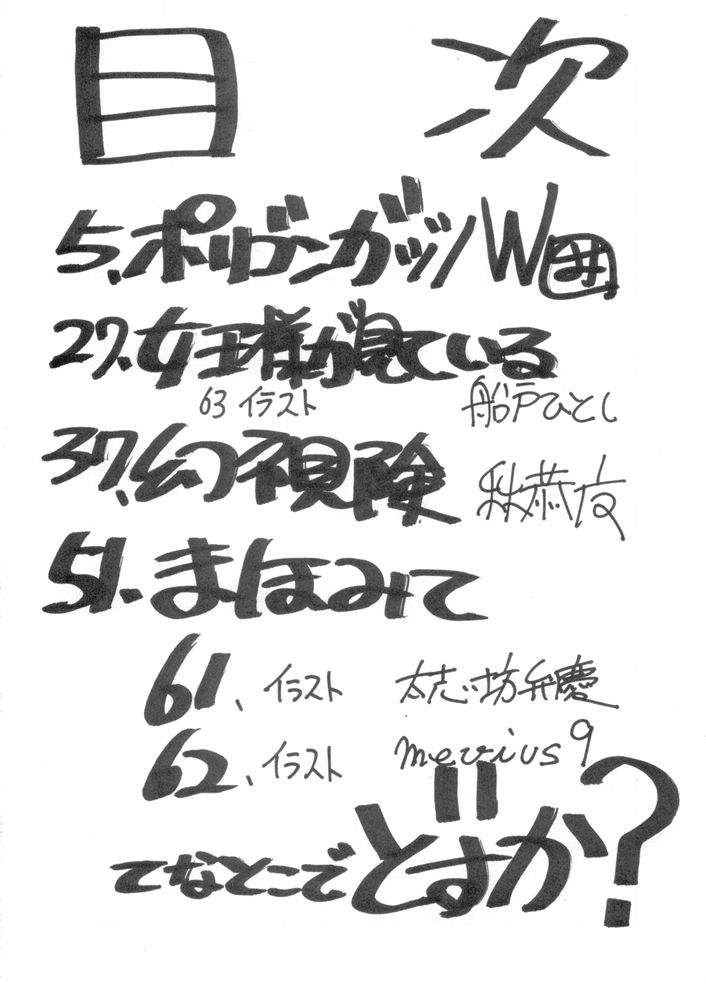 目次
5.ポリゴンガッツ/W囲
27.女王様が見ている
63 イラスト 船戸ひとし
37.幻視険 秋恭友
51.まほみて
61、イラスト 太志坊弁慶
62、イラスト mevius9
てなとこでどずか?